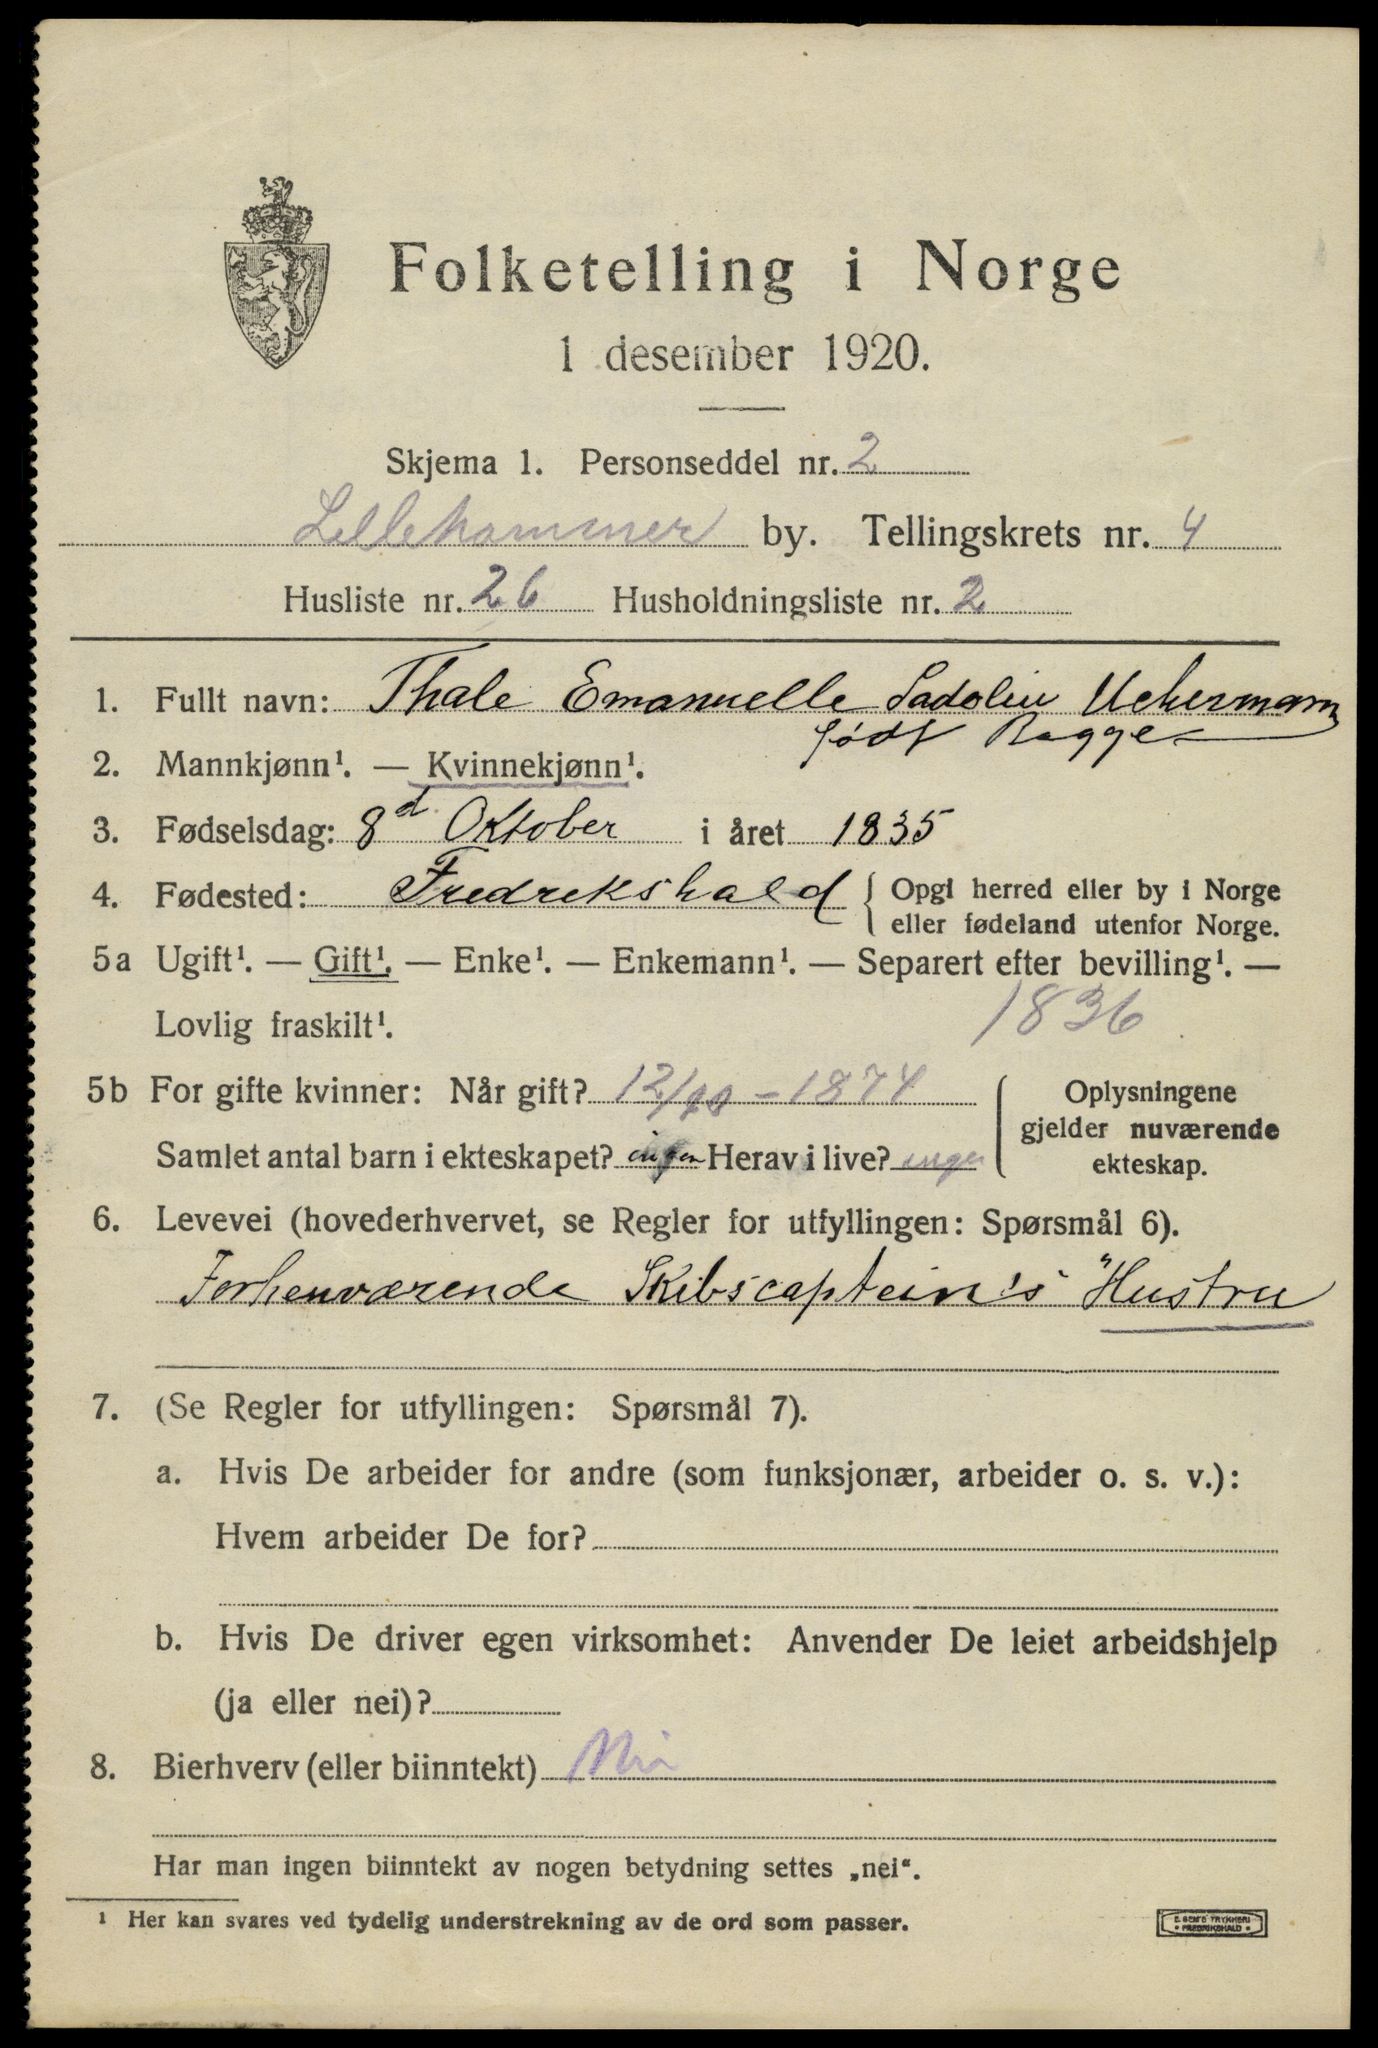 Folketelling i Norge
1 desember 1920.
Skjema 1. Personseddel nr. 2
Lillehammer by. Tellingskrets nr. 4
Husliste nr. 26 Husholdningsliste nr. 2
1. Fullt navn: Thale Emanuelle Sadolin Uchermann
født Bagge
2. Mannkjønn¹. — Kvinnekjønn¹.
3. Fødselsdag: 8d Oktober i året 1835
4. Fødested: Fredrikshald { Opgi herred eller by i Norge
eller fødeland utenfor Norge.
5a Ugift¹. — Gift¹. — Enke¹. — Enkemann¹. — Separert efter bevilling¹. —
Lovlig fraskilt¹. 1836
5b For gifte kvinner: Når gift? 12/10 - 1874 Oplysningene
gjelder nuværende
Samlet antal barn i ekteskapet? ingen Herav i live? ingen ekteskap.
6. Levevei (hovederhvervet, se Regler for utfyllingen: Spørsmål 6).
Forhenværende Skibscaptein's Hustru
7. (Se Regler for utfyllingen: Spørsmål 7).
a. Hvis De arbeider for andre (som funksjonær, arbeider o. s. v.):
Hvem arbeider De for?
b. Hvis De driver egen virksomhet: Anvender De leiet arbeidshjelp
(ja eller nei)?
8. Bierhverv (eller biinntekt) Nei
Har man ingen biinntekt av nogen betydning settes „nei“.
¹ Her kan svares ved tydelig understrekning av de ord som passer.
E. SEM'S TRYKKERI
FREDRIKSHALD